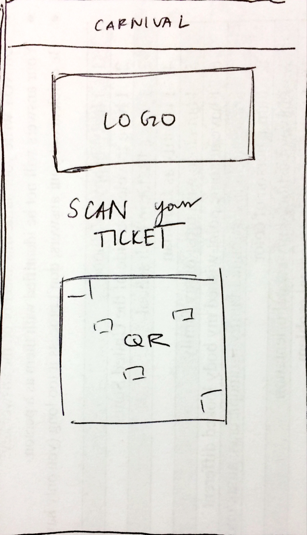 CARNIVAL
LOGO
SCAN your
TICKET
QR